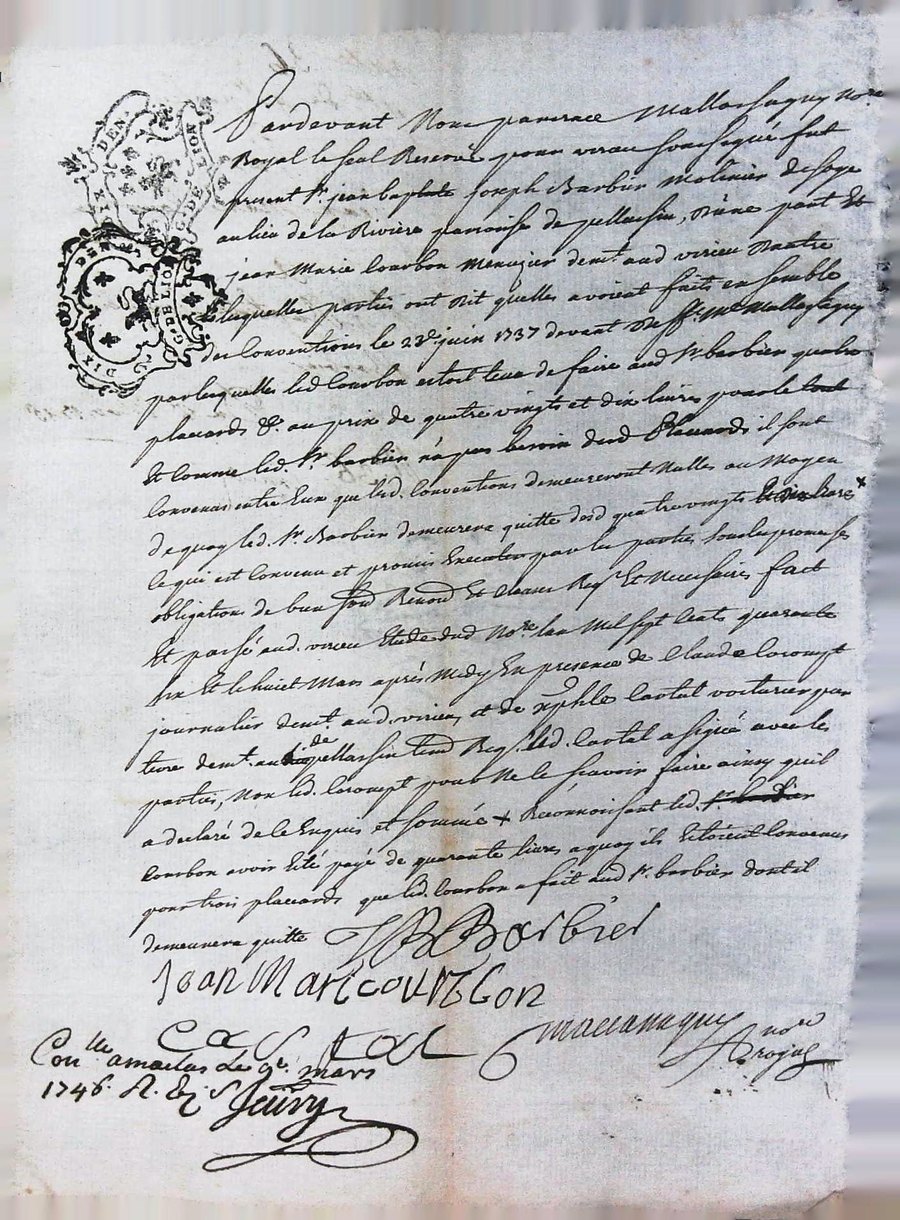 DIX DEN
G. DE LION
DIX DEN
G. DE LION
Pardevant Nous Mallassagny No.re
Royal le seul Reservé pour virieu soussigné fut
present Sr. jean baptiste Joseph Barbier Molinier
au lieu de la Rivière parroisse de pellassin, d'une part Et
jean Marie Courbon Menuzier demt. aud virieu Dautre
lesquelles parties ont dit quelles avoient faits ensemble
des Conventions le 23e. juin 1737 devant Mallassagny
par lesquelles led Courbon estoit tenu de faire aud Sr. barbier quatre
placcards &. au prix de quatre vingts et dix livres pour le tout
Et comme led. Sr. barbier n'a pas besoin desd Placcards il sont
convenus entre Eux que lesd. Conventions demeureront Nulles au Moyen
de quoy led. Sr. Barbier demeurera quitte desd quatre vingts et dix livres x
ce qui est Convenu et promis Executer par les parties sous les promesses
obligation de bien fond Renond Et clauses Reqs. Et Necessaires fait
Et passé aud. virieu Etude dud No.re lan Mil sept Cents quarante
six Et le huict Mars après Midy En presence de Claude
journalier demt. aud. virieu, et de Cartal voiturier par
terre demt. au de pellassin Reqs. led. Cartal a signé avec les
parties, Non led. pour Ne le scavoir faire ainsy quil
a declaré de ce Enquis et sommé + Reconnoissant led. Sr. barbier
Courbon avoir Eté payé de quarante livres a quoy ils Etoient Convenus
pour trois placcards que led. Courbon a fait aud Sr. barbier dont il
demeurera quitte JB Barbier
Jean Maricourbon
Cartal
Mallassagny no.re
royal
Con.lle Le 9e. mars
1746. R.